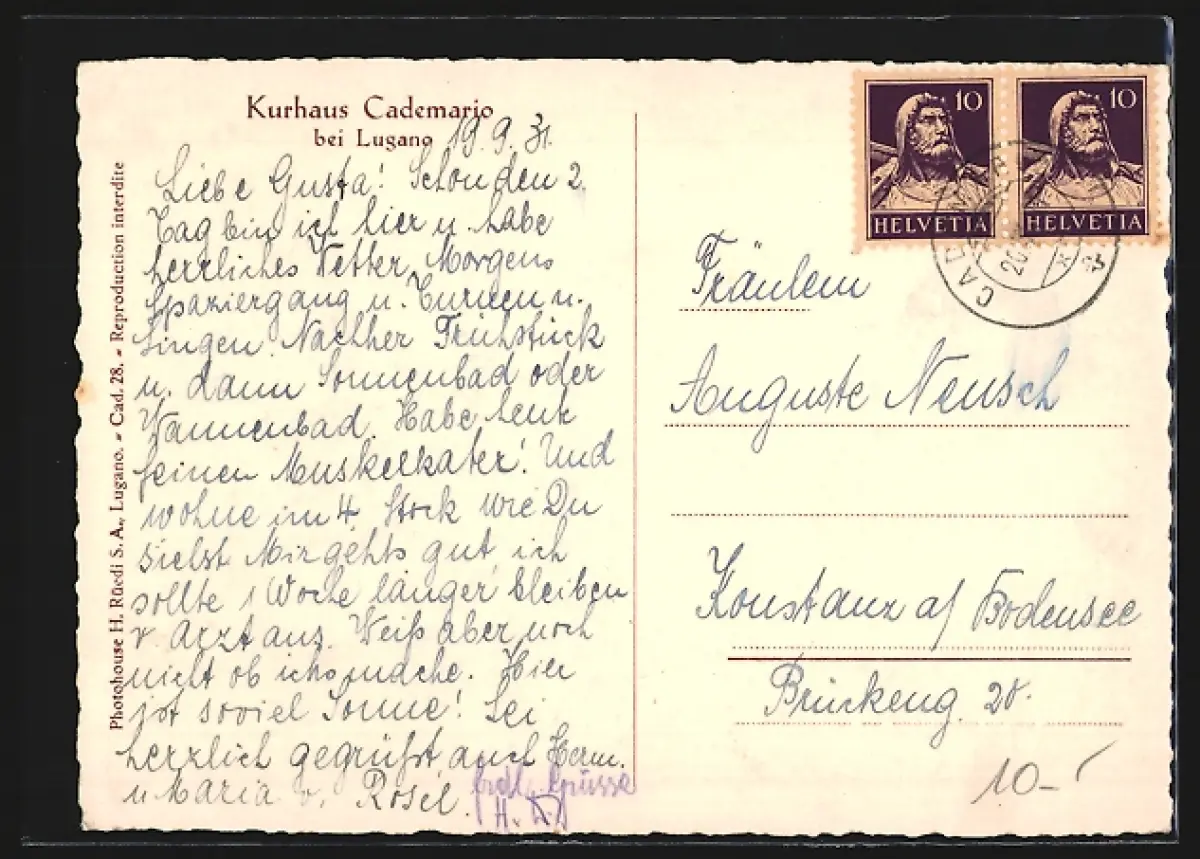 Kurhaus Cademario
bei Lugano 19.9.31.
Liebe Gusta! Schon den 2.
Tag bin ich hier u. habe
herrliches Wetter. Morgens
Spaziergang u. Turnen u.
Singen. Nachher Frühstück
u. dann Sonnenbad oder
Wannenbad. Habe heute
feinen Muskelkater! Und
wohne im 4. Stock wie Du
siehst. Mir gehts gut, ich
sollte 1 Woche länger bleiben
v. Arzt aus. Weiß aber noch
nicht ob ichs mache. Hier
ist soviel Sonne! Sei
herzlich gegrüßt auch Herm.
u. Maria v. Rosel.
Grüsse
H.
Photohouse H. Rüedi S. A., Lugano. - Cad. 28. - Reproduction interdite
10 10
HELVETIA HELVETIA
CADEMARIO
Fräulein
Auguste Neusch
Konstanz a/ Bodensee
Brückeng. 20.
10.-